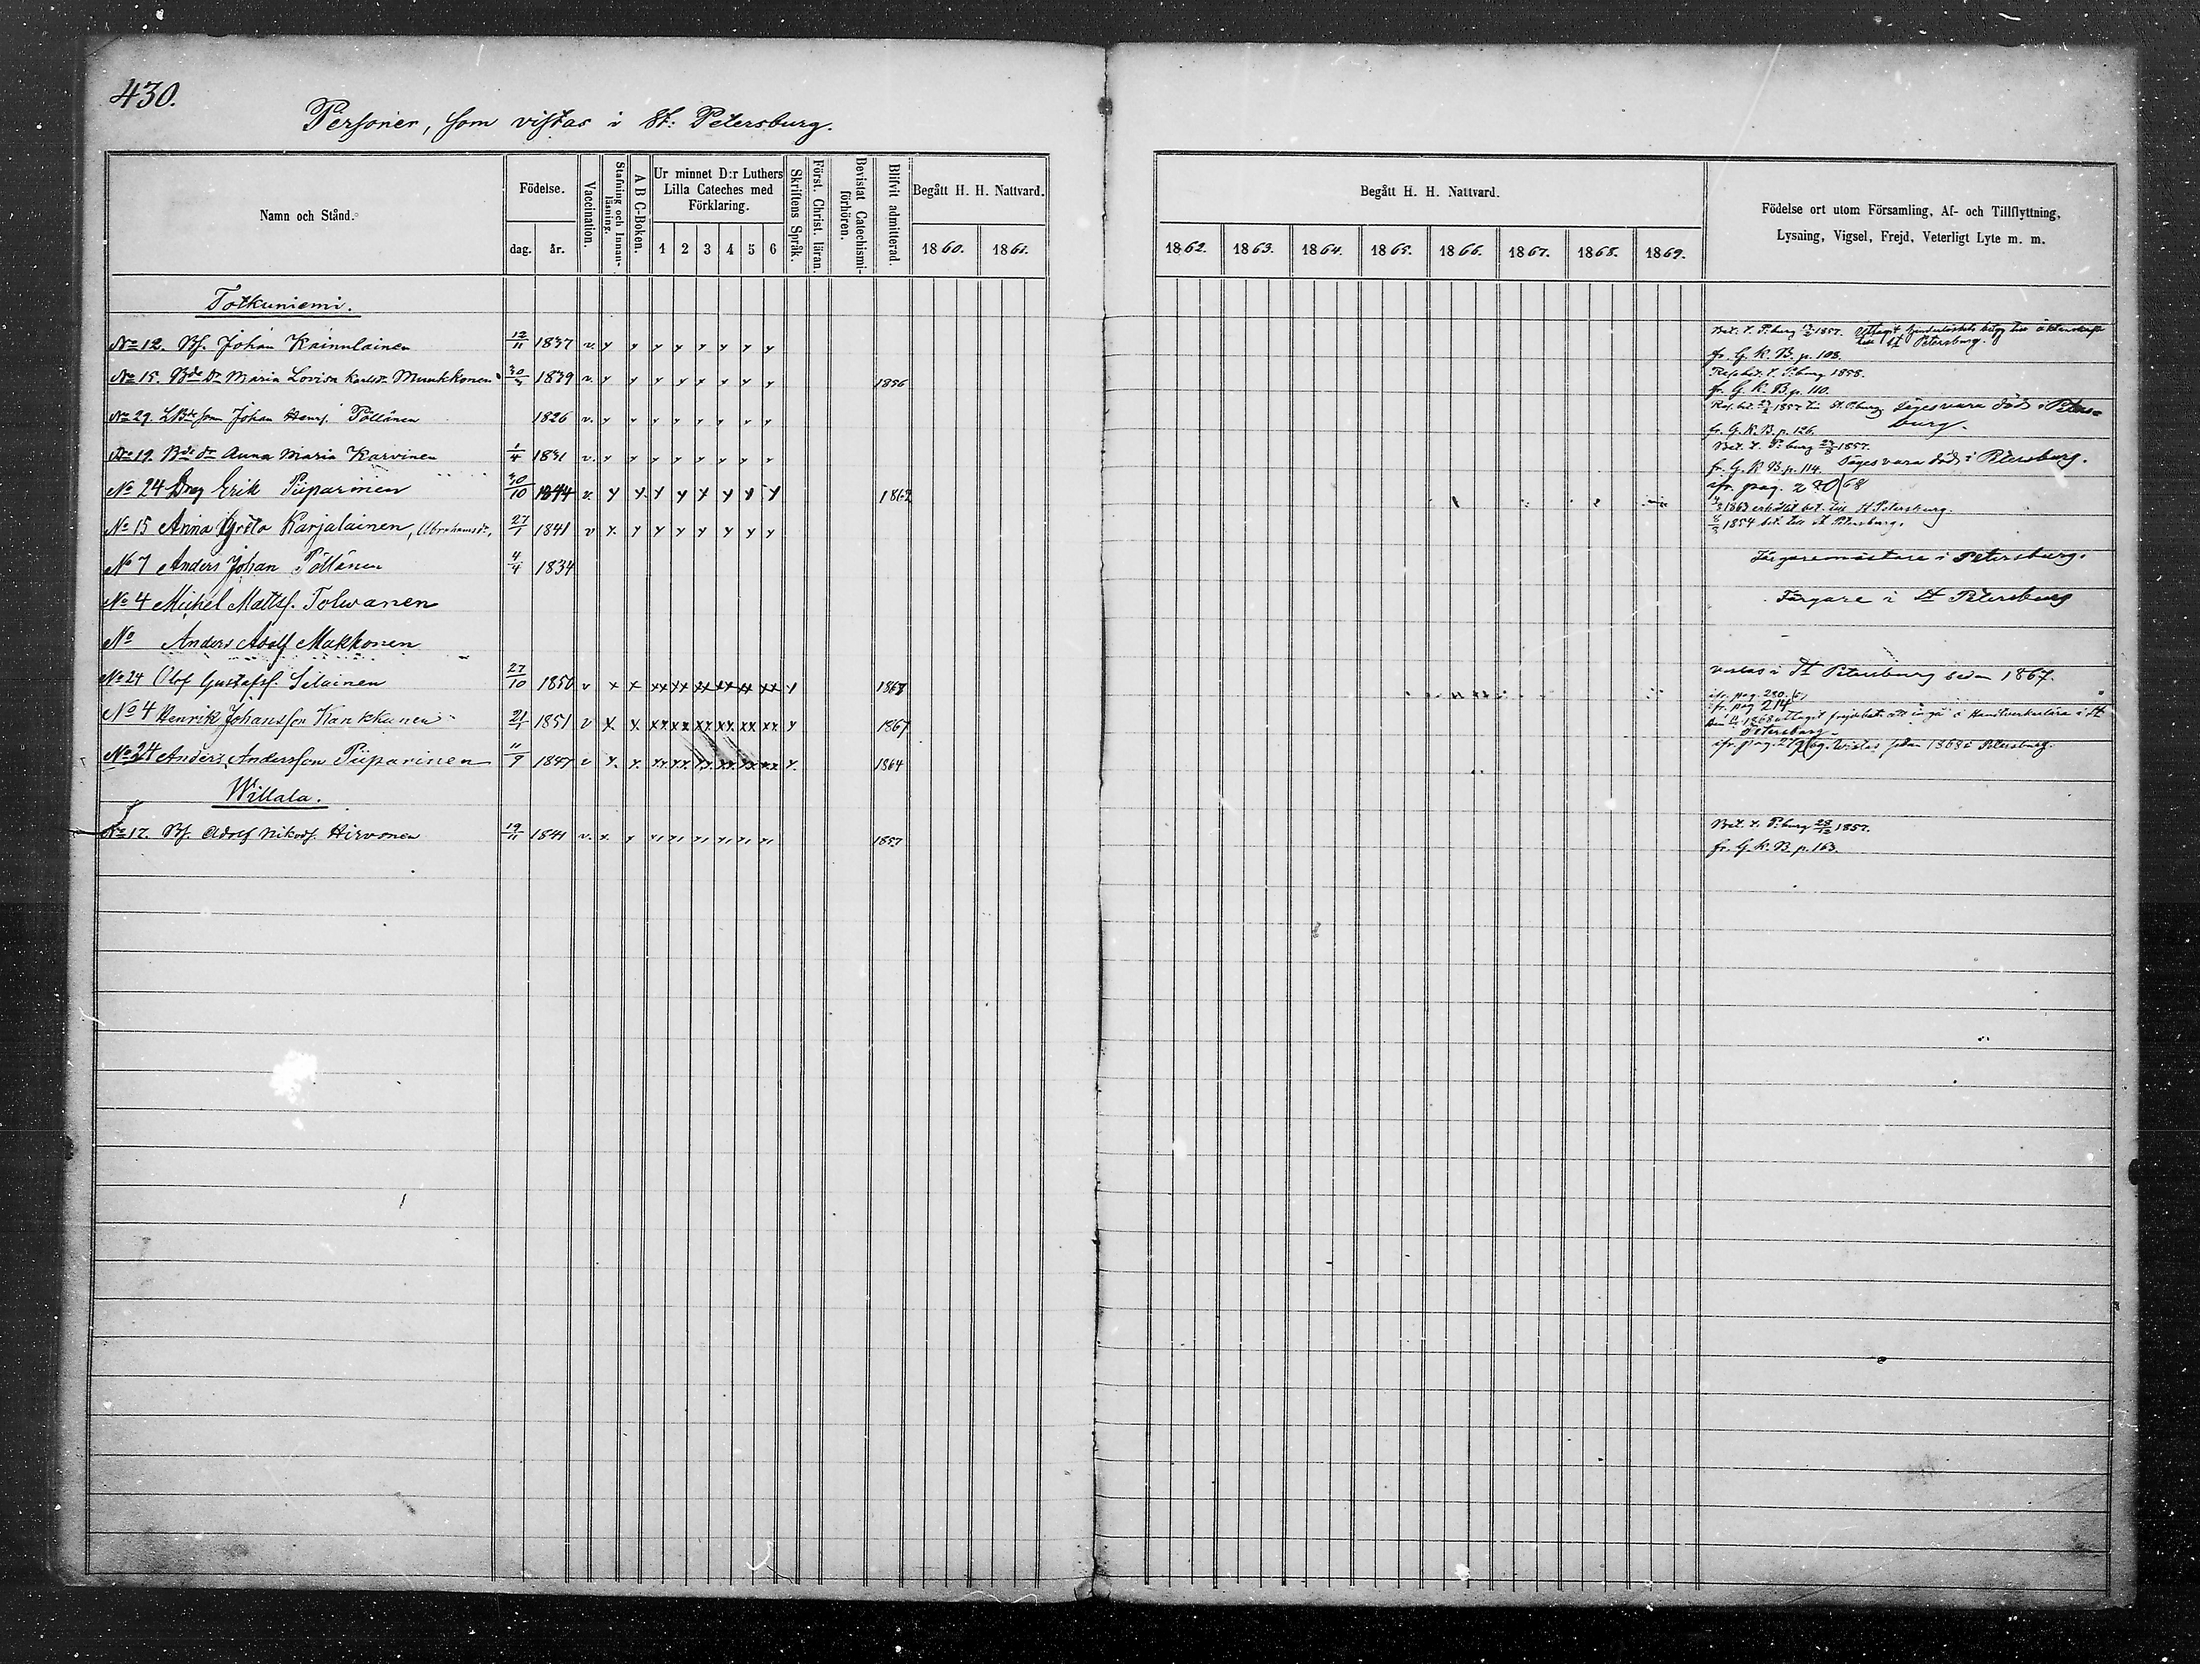 430.
Personer, som vistas i St: Petersburg.
Namn och Stånd.
Födelse.
dag. år.
Vaccination.
Stafning och Innanläsning.
A B C-Boken.
Ur minnet D:r Luthers Lilla Cateches med Förklaring.
1 2 3 4 5 6
Skriftens Språk.
Först. Christ. läran.
Bevistat Catechismiförhören.
Blifvit admitterad.
Begått H. H. Nattvard.
1860. 1861.
Begått H. H. Nattvard.
1862. 1863. 1864. 1865. 1866. 1867. 1868. 1869.
Födelse ort utom Församling, Af- och Tillflyttning,
Lysning, Vigsel, Frejd, Veterligt Lyte m. m.
Totkuniemi.
No 12. Bf. Johan Kainulainen 12/11 1837 v. y y y y y y y y
Bet. t. P:burg 1857. till St Petersburg.
fr. G. K. B. p. 108.
No 15. Bde Dr Maria Lovisa Karlsdr Muukkonen 30/3 1839 v. y y y y y y y y 1856
Bet. t. P:burg 1858.
fr. G. K. B. p. 110.
No 29. LBde Son Johan Henr. Pöllänen 1826 v. y y y y y y y y
1857 till St P:burg Säges vara död i Petersburg.
fr. G. K. B. p. 126.
No 19. Bde dr Anna Maria Karvinen 1/4 1831 v. y y y y y y y y
Bet. t. P:burg 1857.
fr. G. K. B. p. 114. Säges vara död i Petersburg.
No 24 Drag Erik Piiparinen 30/10 1844 v. y y y y y y y y 1862
ifr. pag. 280/68
1863 erhållit bet. till St Petersburg.
No 15 Anna Greta Karjalainen, Abrahamsdr. 27/1 1841 v x y y y y y y y
1854 bet. till St Petersburg.
No 7 Anders Johan Pöllänen 4/4 1834
Färgaremästare i Petersburg.
No 4 Michel Mattsf. Tolwanen
Färgare i St Petersburg
No Anders Adolf Makkonen
No 24 Olof Gustafsf. Silainen 27/10 1850 v x x xx xx xx xx xx xx y 1868
vistas i St Petersburg sedan 1867.
ifr. pag. 280.
No 4 Henrik Johansson Kankkunen 21/1 1851 v x x xx xx xx xx xx xx y 1867
fr. pag 214
1868 uttagit frejdebet. att ingå i Handtverkslära i St Petersburg.
No 24 Anders Andersson Piiparinen 11/9 1847 v x x xx xx xx xx xx xx x. 1864
ifr. pag. 279/69. Vistas sedan 1868 i Petersburg.
Willala.
No 17. Bf. Adolf Nikodf. Hirvonen 19/11 1841 v. x. y 1857
Bet. t. P:burg 28/12 1857.
fr. G. K. B. p. 163.